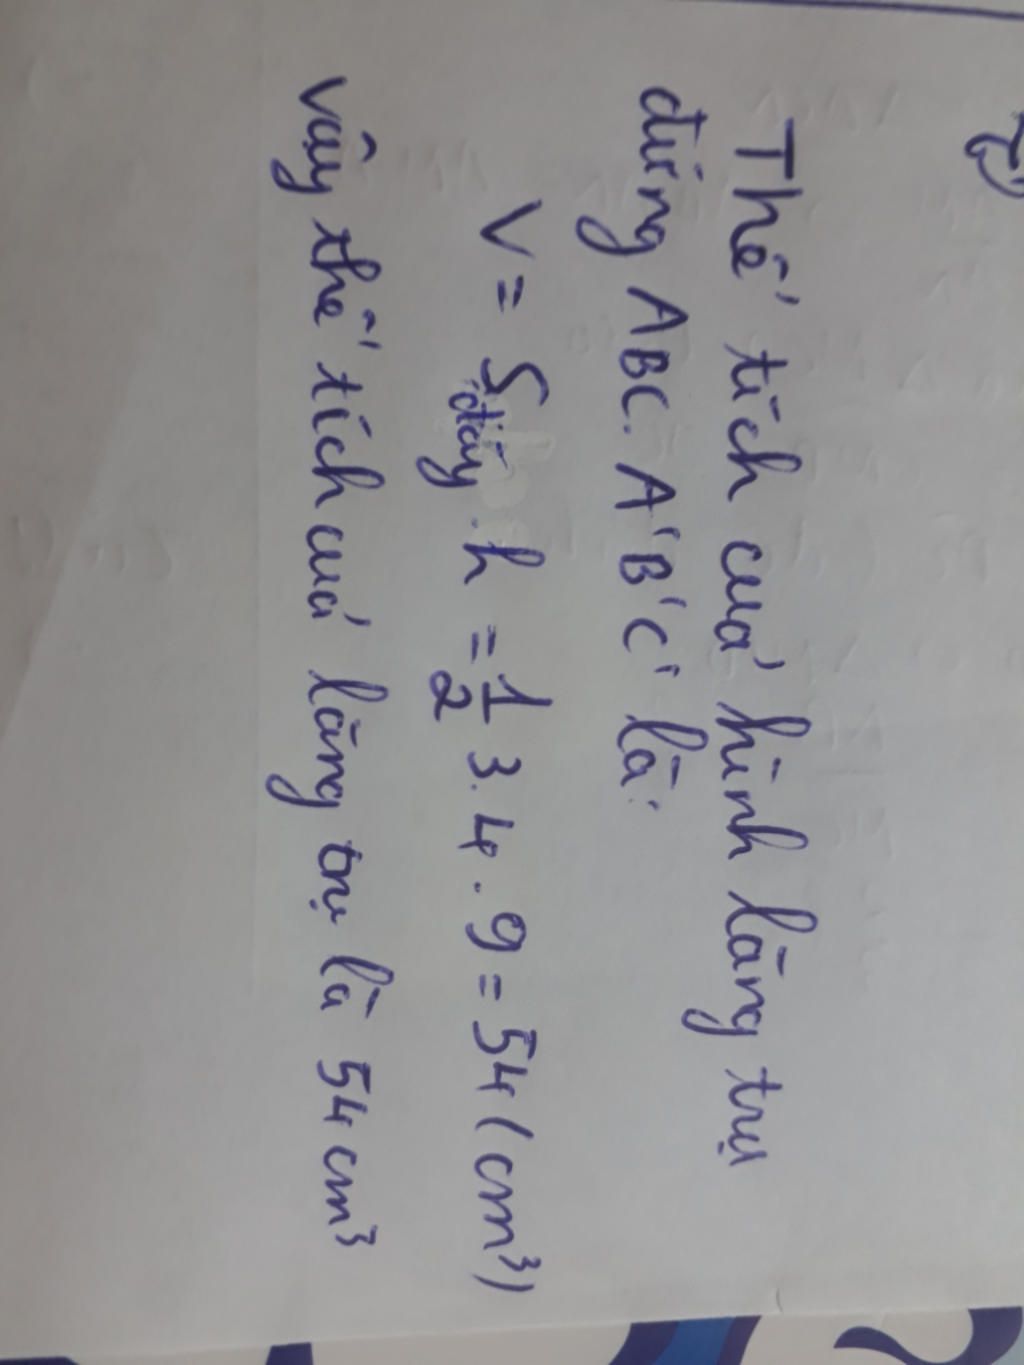 Thể tích của hình lăng trụ
đứng ABC.A'B'C' là:
V = Sđáy.h = 1/2 3.4.9 = 54 (cm³)
Vậy thể tích của lăng trụ là 54 cm³